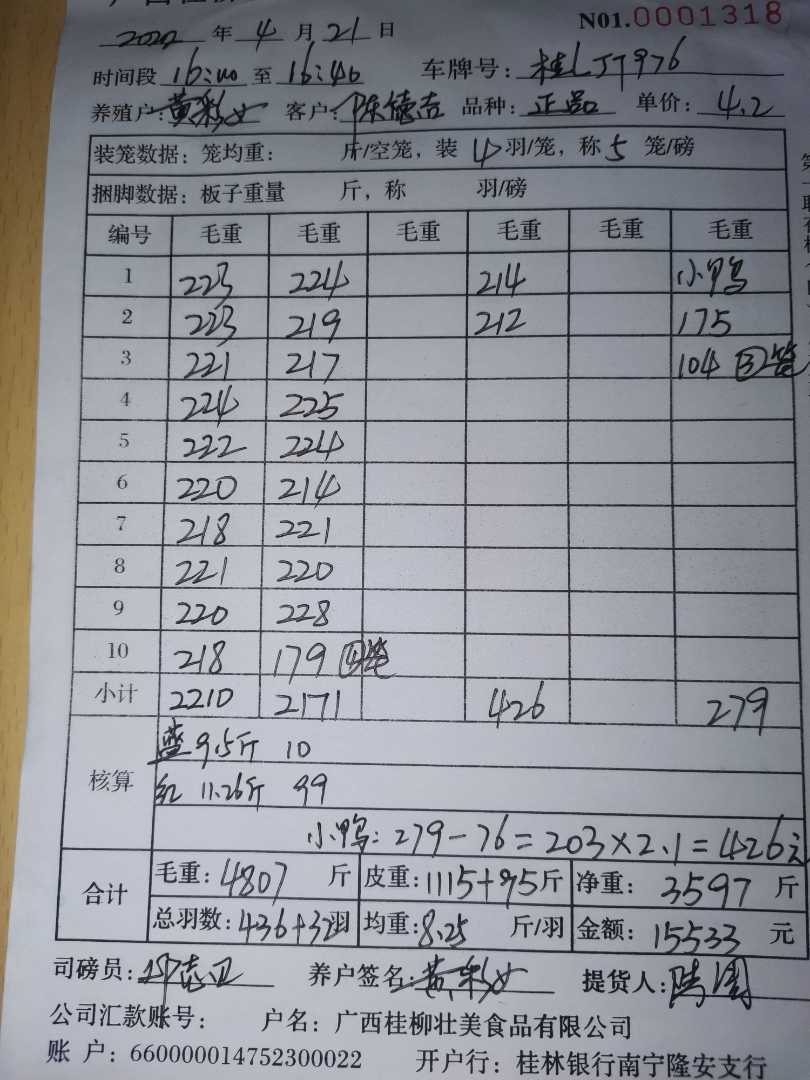 N01.0001318
2020 年 4 月 21 日
时间段 16:00 至 16:40 车牌号: 桂LJT976
养殖户: 黄彩女 客户: 陈德吉 品种: 正品 单价: 4.2
装笼数据: 笼均重: 斤/空笼, 装 4 羽/笼, 称 5 笼/磅
捆脚数据: 板子重量 斤, 称 羽/磅
编号 毛重 毛重 毛重 毛重 毛重 毛重
1 223 224 214 小鸭
2 223 219 212 175
3 221 217 104 ③笼
4 224 225
5 222 224
6 220 214
7 218 221
8 221 220
9 220 228
10 218 179 ④笼
小计 2210 2171 426 279
核算
蓝 9.5斤 10
红 11.26斤 99
小鸭: 279-76=203×2.1=426元
合计
毛重: 4807 斤 皮重: 1115+95斤 净重: 3597 斤
总羽数: 436+32羽 均重: 8.25 斤/羽 金额: 15533 元
司磅员: 养户签名: 黄彩女 提货人:
公司汇款账号: 户名: 广西桂柳壮美食品有限公司
账 户: 660000014752300022 开户行: 桂林银行南宁隆安支行